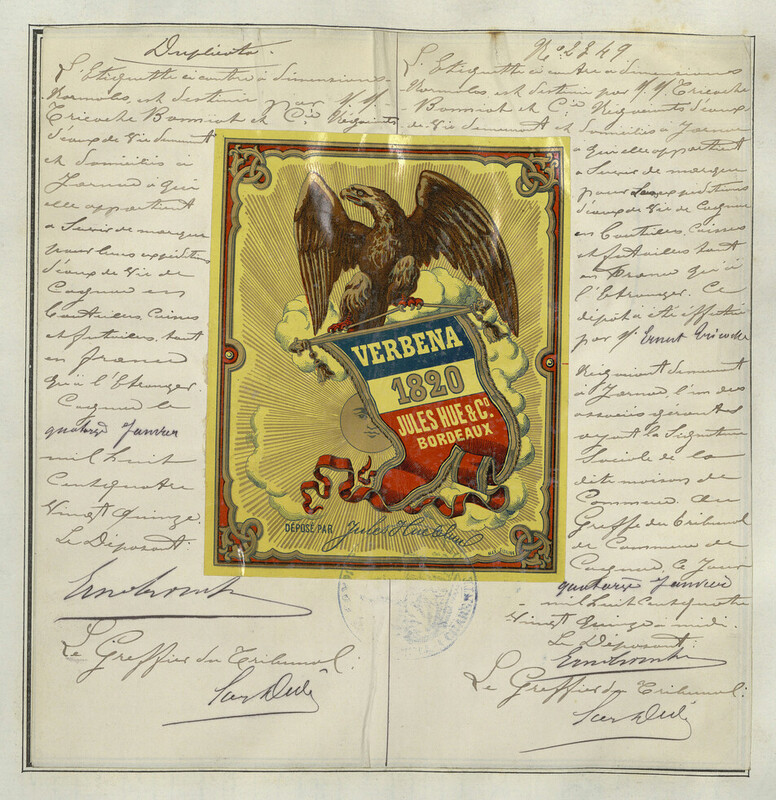 Duplicata.
L'Etiquette ci contre à dimensions
Normales, est destinée par M. M.
Tricoche Bonniot et Cie Négociants
d'eaux de vie demeurant
et domiciliés à
Jarnac à qui
elle appartient
à Servir de marque
pour leurs expéditions
d'eaux de Vie de
Cognac en
bouteilles, Caisses
et futailles, tant
en france
qu'à l'Etranger.
Cognac le
quatorze Janvier
mil huit
Cent quatre
Vingt Quinze.
Le Déposant:
Le Greffier du Tribunal:
VERBENA
1820
JULES HUE & Co.
BORDEAUX
DÉPOSÉ PAR Jules Hue &
No. 2249
L'Etiquette ci contre à dimensions
Normales, est destinée par M. M Tricoche
Bonniot et Cie Négociants d'eaux
de Vie demeurant et domiciliés à Jarnac
à qui elle appartient
à Servir de marque
pour expéditions
d'eaux de Vie de Cognac
en bouteilles, Caisses
et futailles tant
en France qu'à
l'Etranger. Ce
dépôt a été effectué
par M. Ernest Tricoche
Négociant demeurant
à Jarnac, l'un des
associés gérants
ayant la Signature
Sociale de la
dite maison de
Commerce. Au
Greffe du tribunal
de Commerce de
Cognac, ce Jour
quatorze Janvier
mil huit Cent quatre
Vingt Quinze à midi.
Le Déposant:
Le Greffier du Tribunal: